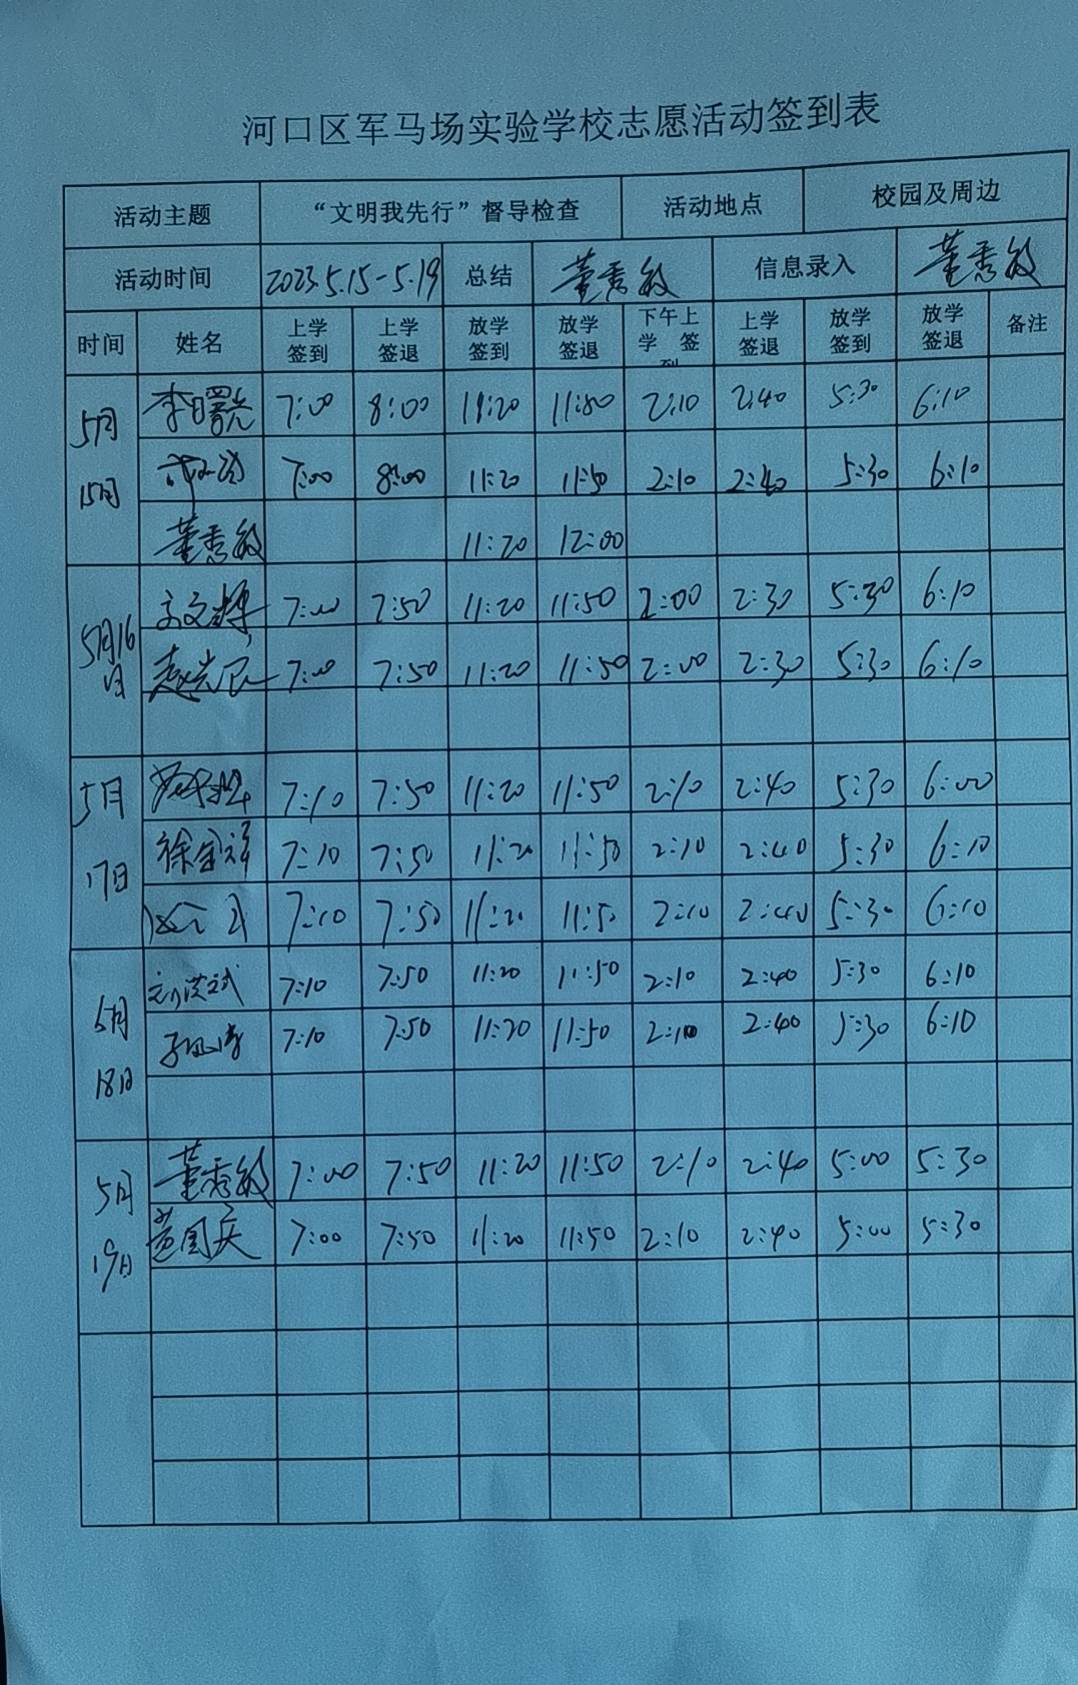 河口区军马场实验学校志愿活动签到表
活动主题 “文明我先行”督导检查 活动地点 校园及周边
活动时间 2023.5.15-5.19 总结 董秀敏 信息录入 董秀敏
时间 姓名 上学签到 上学签退 放学签到 放学签退 下午上学 签到 上学签退 放学签到 放学签退 备注
5月15日 李曙光 7:00 8:00 11:20 11:50 2:10 2:40 5:30 6:10
7:00 8:00 11:20 11:50 2:10 2:40 5:30 6:10
董秀敏 11:20 12:00
5月16日 7:00 7:50 11:20 11:50 2:00 2:30 5:30 6:10
7:00 7:50 11:20 11:50 2:00 2:30 5:30 6:10
5月17日 7:10 7:50 11:20 11:50 2:10 2:40 5:30 6:00
7:10 7:50 11:20 11:50 2:10 2:40 5:30 6:10
7:10 7:50 11:20 11:50 2:10 2:40 5:30 6:10
5月18日 刘洪武 7:10 7:50 11:20 11:50 2:10 2:40 5:30 6:10
7:10 7:50 11:20 11:50 2:10 2:40 5:30 6:10
5月19日 董秀敏 7:00 7:50 11:20 11:50 2:10 2:40 5:00 5:30
7:00 7:50 11:20 11:50 2:10 2:40 5:00 5:30